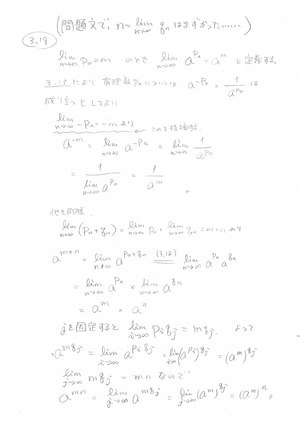 (問題文で、n = lim_{n→∞} q_n はまずかった……)
3.18
lim_{n→∞} p_n = m のとき a^{p_n} = a^m と定義する。
3.17 により 有理数 p_n については a^{-p_n} = 1/a^{p_n} は
成り立つとしてよい
lim_{n→∞} -p_n = -m より
a^{-m} = lim_{n→∞} a^{-p_n} = lim_{n→∞} 1/a^{p_n}
= 1/(lim_{n→∞} a^{p_n}) = 1/a^m 。
他も同様.
lim_{n→∞} (p_n + q_n) = lim_{n→∞} p_n + lim_{n→∞} q_n = m + n より
a^{m+n} = lim_{n→∞} a^{p_n+q_n} = lim_{n→∞} a^{p_n} a^{q_n}
= lim_{n→∞} a^{p_n} × lim_{n→∞} a^{q_n}
= a^m · a^n
jを固定すると lim_{i→∞} p_i q_j = m q_j. よって
a^{m q_j} = lim_{i→∞} a^{p_i q_j} = lim_{i→∞} (a^{p_i})^{q_j} = (a^m)^{q_j}
lim_{j→∞} m q_j = mn なので
a^{mn} = lim_{j→∞} a^{m q_j} = lim_{j→∞} (a^m)^{q_j} = (a^m)^n 。